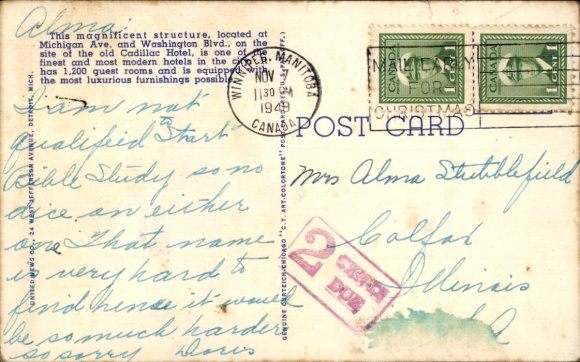 Alma:
This magnificent structure, located at
Michigan Ave. and Washington Blvd., on the
site of the old Cadillac Hotel, is one of the
finest and most modern hotels in the city
has 1,200 guest rooms and is equipped with
the most luxurious furnishings possible.
I am not
qualified "Start"
Bible Study so no
dice on either
one. That name
is very hard to
find hence it would
be so much harder
so sorry Doris
UNITED NEWS CO., 24 WEST JEFFERSON AVENUE, DETROIT, MICH.
GENUINE CURTEICH-CHICAGO "C.T. ART-COLORTONE" POST CARD
WINNIPEG, MANITOBA
NOV
1130 PM
1948
CANADA
MAIL EARLY
FOR
CHRISTMAS
CANADA
1 CENT 1
CANADA
1 CENT 1
POST CARD
Mrs Alma Stubblefield
Colfax
Illinois
2
CENTS
DUE